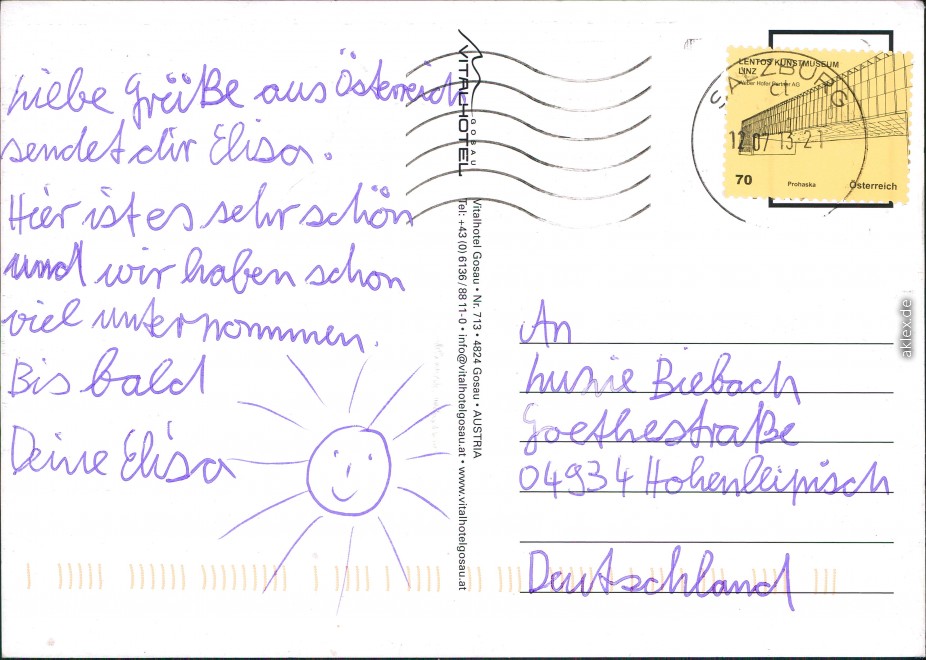 Liebe Grüße aus Österreich
sendet dir Elisa.
Hier ist es sehr schön
und wir haben schon
viel unternommen.
Bis bald
Deine Elisa
VITALHOTEL
GOSAU
Vitalhotel Gosau • Nr. 713 • 4824 Gosau • AUSTRIA
Tel: +43 (0) 6136 / 88 11-0 • info@vitalhotelgosau.at • www.vitalhotelgosau.at
LENTOS KUNSTMUSEUM
LINZ
Weber Hofer Partner AG
SALZBURG
12 07 13-21
70
Prohaska
Österreich
An
Biebach
Goethestraße
04934 Hohenleipisch
Deutschland
aklex.de